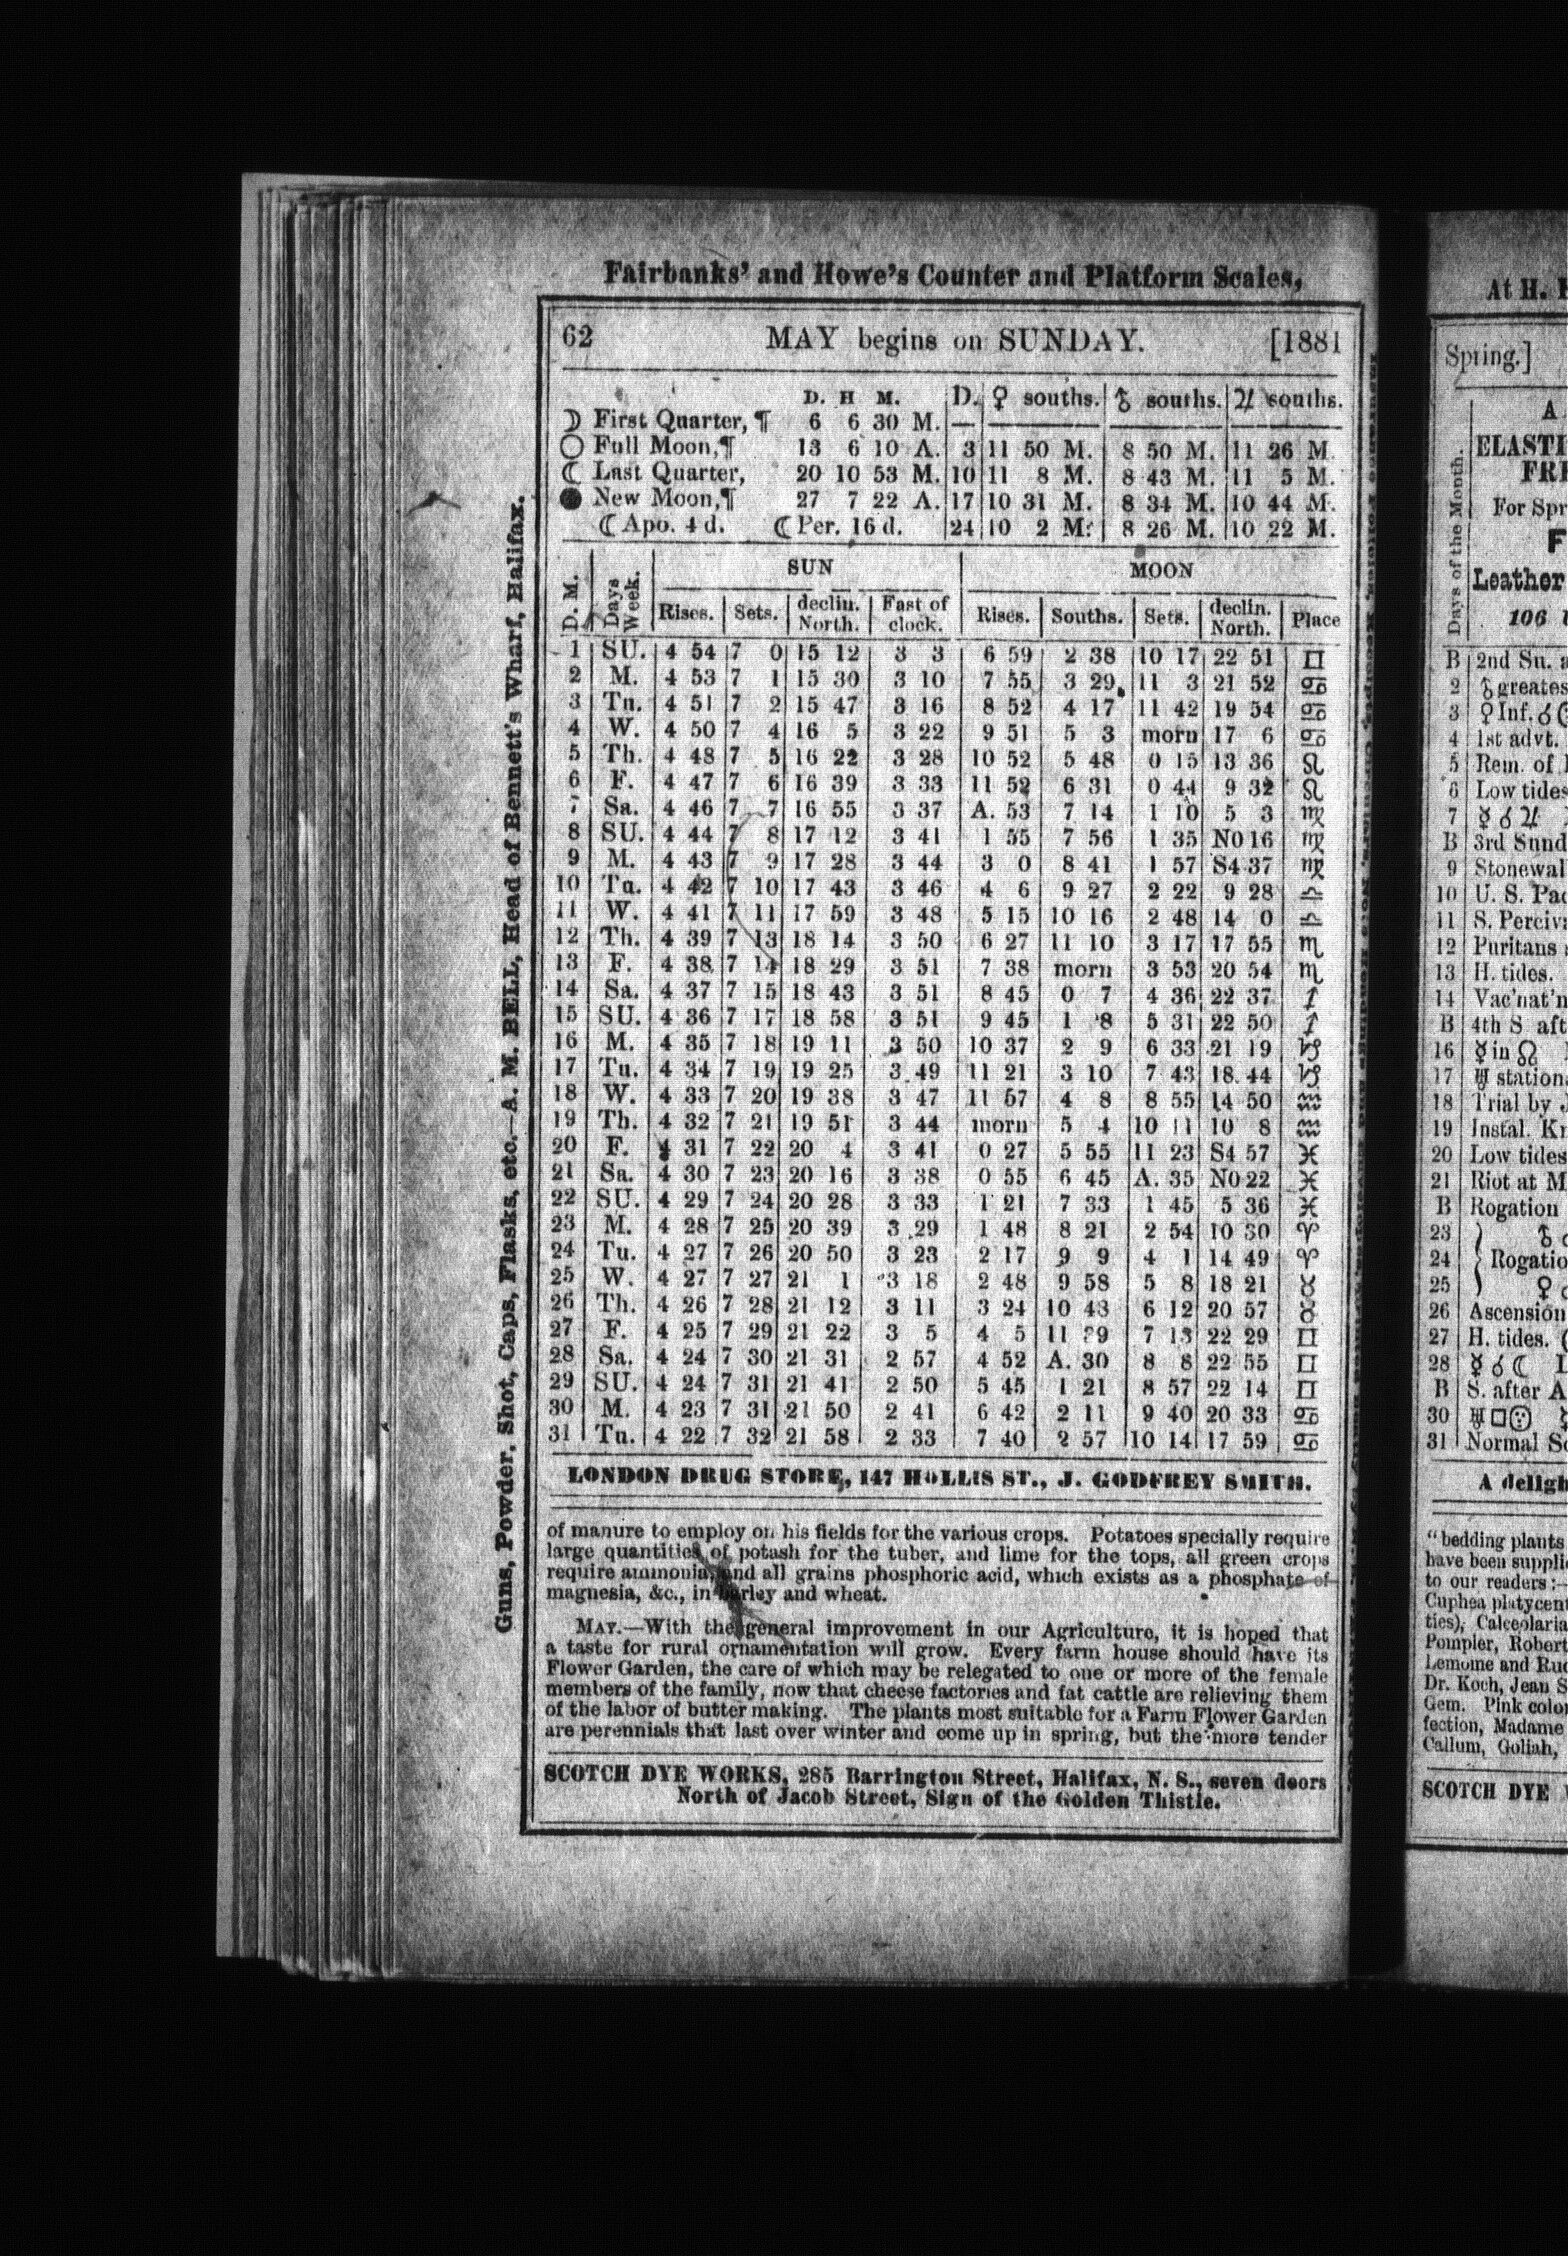 Fairbanks' and Howe's Counter and Platform Scales,
62 MAY begins on SUNDAY. [1881
D. H M. D. ♀ souths. ♂ souths. ♃ souths.
☽ First Quarter, ¶ 6 6 30 M.
○ Full Moon,¶ 13 6 10 A. 3 11 50 M. 8 50 M. 11 26 M.
☾ Last Quarter, 20 10 53 M. 10 11 8 M. 8 43 M. 11 5 M.
● New Moon,¶ 27 7 22 A. 17 10 31 M. 8 34 M. 10 44 M.
☾ Apo. 4 d. ☾ Per. 16 d. 24 10 2 M. 8 26 M. 10 22 M.
D. M. Days Week. SUN MOON
Rises. Sets. declin. North. Fast of clock. Rises. Souths. Sets. declin. North. Place
1 SU. 4 54 7 0 15 12 3 3 6 59 2 38 10 17 22 51 ♊
2 M. 4 53 7 1 15 30 3 10 7 55 3 29 11 3 21 52 ♋
3 Tu. 4 51 7 2 15 47 3 16 8 52 4 17 11 42 19 54 ♋
4 W. 4 50 7 4 16 5 3 22 9 51 5 3 morn 17 6 ♋
5 Th. 4 48 7 5 16 22 3 28 10 52 5 48 0 15 13 36 ♌
6 F. 4 47 7 6 16 39 3 33 11 52 6 31 0 44 9 32 ♌
7 Sa. 4 46 7 7 16 55 3 37 A. 53 7 14 1 10 5 3 ♍
8 SU. 4 44 7 8 17 12 3 41 1 55 7 56 1 35 N0 16 ♍
9 M. 4 43 7 9 17 28 3 44 3 0 8 41 1 57 S4 37 ♍
10 Tu. 4 42 7 10 17 43 3 46 4 6 9 27 2 22 9 28 ♎
11 W. 4 41 7 11 17 59 3 48 5 15 10 16 2 48 14 0 ♎
12 Th. 4 39 7 13 18 14 3 50 6 27 11 10 3 17 17 55 ♏
13 F. 4 38 7 14 18 29 3 51 7 38 morn 3 53 20 54 ♏
14 Sa. 4 37 7 15 18 43 3 51 8 45 0 7 4 36 22 37 ♐
15 SU. 4 36 7 17 18 58 3 51 9 45 1 8 5 31 22 50 ♐
16 M. 4 35 7 18 19 11 3 50 10 37 2 9 6 33 21 19 ♑
17 Tu. 4 34 7 19 19 25 3 49 11 21 3 10 7 43 18 44 ♑
18 W. 4 33 7 20 19 38 3 47 11 57 4 8 8 55 14 50 ♒
19 Th. 4 32 7 21 19 51 3 44 morn 5 4 10 11 10 8 ♒
20 F. 4 31 7 22 20 4 3 41 0 27 5 55 11 23 S4 57 ♓
21 Sa. 4 30 7 23 20 16 3 38 0 55 6 45 A. 35 N0 22 ♓
22 SU. 4 29 7 24 20 28 3 33 1 21 7 33 1 45 5 36 ♓
23 M. 4 28 7 25 20 39 3 29 1 48 8 21 2 54 10 30 ♈
24 Tu. 4 27 7 26 20 50 3 23 2 17 9 9 4 1 14 49 ♈
25 W. 4 27 7 27 21 1 3 18 2 48 9 58 5 8 18 21 ♉
26 Th. 4 26 7 28 21 12 3 11 3 24 10 48 6 12 20 57 ♉
27 F. 4 25 7 29 21 22 3 5 4 5 11 39 7 13 22 29 ♊
28 Sa. 4 24 7 30 21 31 2 57 4 52 A. 30 8 8 22 55 ♊
29 SU. 4 24 7 31 21 41 2 50 5 45 1 21 8 57 22 14 ♊
30 M. 4 23 7 31 21 50 2 41 6 42 2 11 9 40 20 33 ♋
31 Tu. 4 22 7 32 21 58 2 33 7 40 2 57 10 14 17 59 ♋
LONDON DRUG STORE, 147 HOLLIS ST., J. GODFREY SMITH.
of manure to employ on his fields for the various crops. Potatoes specially require
large quantities of potash for the tuber, and lime for the tops, all green crops
require ammonia, and all grains phosphoric acid, which exists as a phosphate of
magnesia, &c., in barley and wheat.
MAY.—With the general improvement in our Agriculture, it is hoped that
a taste for rural ornamentation will grow. Every farm house should have its
Flower Garden, the care of which may be relegated to one or more of the female
members of the family, now that cheese factories and fat cattle are relieving them
of the labor of butter making. The plants most suitable for a Farm Flower Garden
are perennials that last over winter and come up in spring, but the more tender
SCOTCH DYE WORKS, 285 Barrington Street, Halifax, N. S., seven doors
North of Jacob Street, Sign of the Golden Thistle.
Guns, Powder, Shot, Caps, Flasks, etc.—A. M. BELL, Head of Bennett's Wharf, Halifax.
At H.
Spring.]
A
ELASTI
FRE
For Spr
F
Leather
106
Days of the Month.
B 2nd Su. a
2 ♂ greates
3 ♀ Inf. ☌
4 1st advt.
5 Rem. of
6 Low tides
7 ☿ ☌ ♃
B 3rd Sund
9 Stonewal
10 U. S. Pac
11 S. Perciv
12 Puritans
13 H. tides.
14 Vac'nat'n
B 4th S. aft
16 ☿ in ☊
17 ♅ station
18 Trial by
19 Instal. Kn
20 Low tides
21 Riot at M
B Rogation
23
24 Rogatio
25 ♀
26 Ascension
27 H. tides.
28 ☿ ☌ ☾
B S. after A
30 ♅ □
31 Normal Sc
A deligh
"bedding plants
have been supplie
to our readers:—
Cuphea platycent
ties), Calceolaria
Pompier, Robert
Lemoine and Ru
Dr. Koch, Jean S
Gem. Pink colo
fection, Madame
Callum, Goliah,
SCOTCH DYE